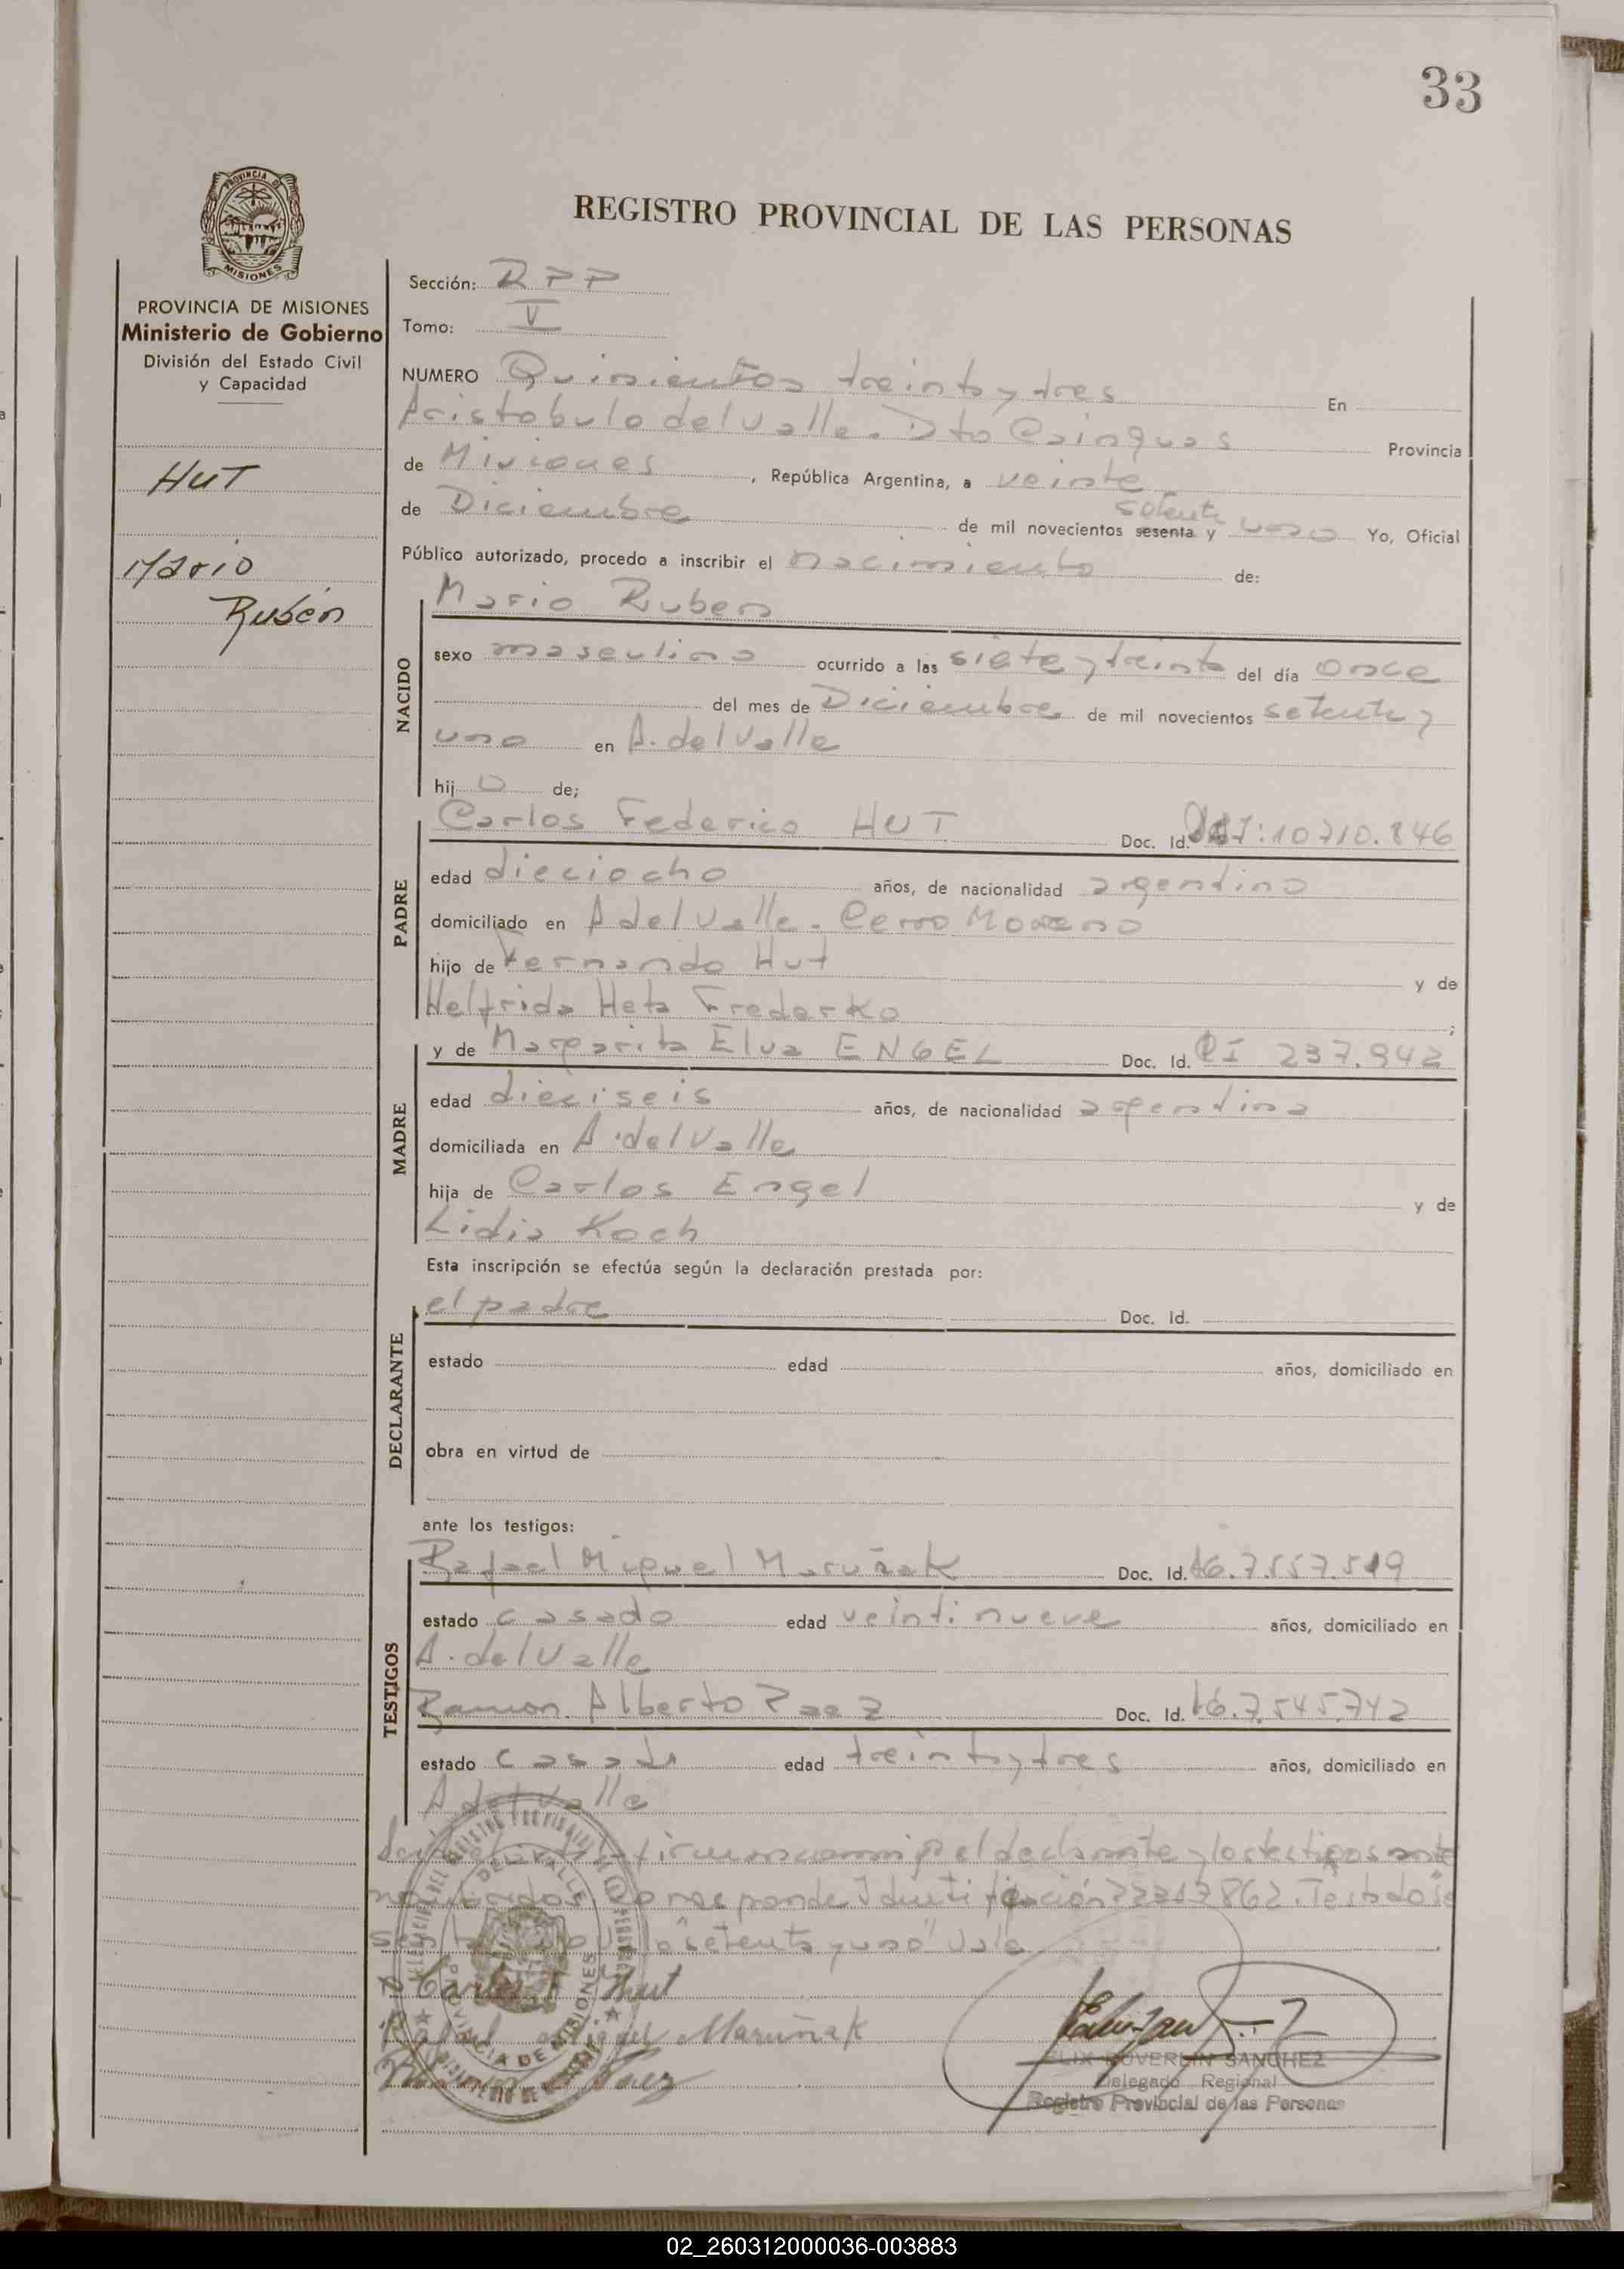 33
REGISTRO PROVINCIAL DE LAS PERSONAS
PROVINCIA DE MISIONES
Ministerio de Gobierno
División del Estado Civil
y Capacidad
HUT
Mario
Rubén
Sección: RPP
Tomo: V
NUMERO Quinientos treinta y tres En
Aristobulo del Valle. Dto Cainguas Provincia
de Misiones, República Argentina, a veinte
setenta
de Diciembre de mil novecientos sesenta y uno Yo, Oficial
Público autorizado, procedo a inscribir el nacimiento de:
Mario Ruben
NACIDO
sexo masculino ocurrido a las siete y treinta del día once
del mes de Diciembre de mil novecientos setenta y
uno en A. del Valle
hijo de;
Carlos Federico HUT Doc. Id. 10710.846
PADRE
edad dieciocho años, de nacionalidad argentino
domiciliado en A del Valle. Cerro Moreno
hijo de Fernando Hut y de
Helfrida Heta Frederko;
y de Margarita Elva ENGEL Doc. Id. CI 237.942
MADRE
edad dieciseis años, de nacionalidad argentina
domiciliada en A. del Valle
hija de Carlos Engel y de
Lidia Koch
Esta inscripción se efectúa según la declaración prestada por:
el padre Doc. Id.
DECLARANTE
estado edad años, domiciliado en
obra en virtud de
ante los testigos:
Rafael Miguel Maruñak Doc. Id. 7.557.519
TESTIGOS
estado casado edad veintinueve años, domiciliado en
A. del Valle
Ramon Alberto Paez Doc. Id. 7.545.742
estado casado edad treinta y tres años, domiciliado en
A del Valle
firman conmigo el declarante y los testigos ante
Corresponde Identificación 22217862. Testado
"setenta y uno" Vale
Hut
Miguel Maruñak
Paez
FELIX SUVERLIN SANCHEZ
Delegado Regional
Registro Provincial de las Personas
02_260312000036-003883